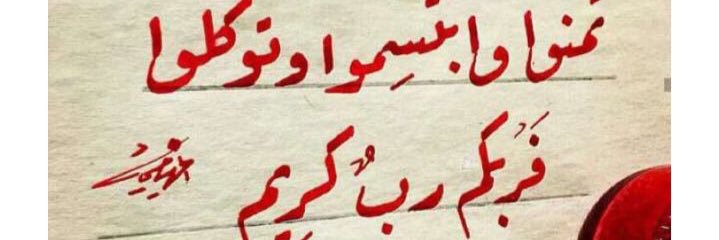 تمنوا وابتسِموا وتوكلوا
فَربكم ربٌ كريم